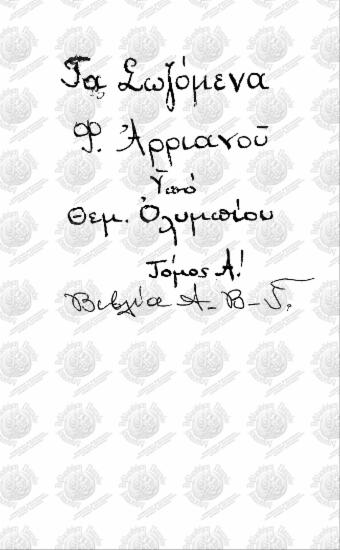 Τα Σωζόμενα
Φ. Ἀρριανοῦ
Ὑπό
Θεμ. Ὀλυμπίου
Τόμος Α!
Βιβλία Α-Β-Γ.